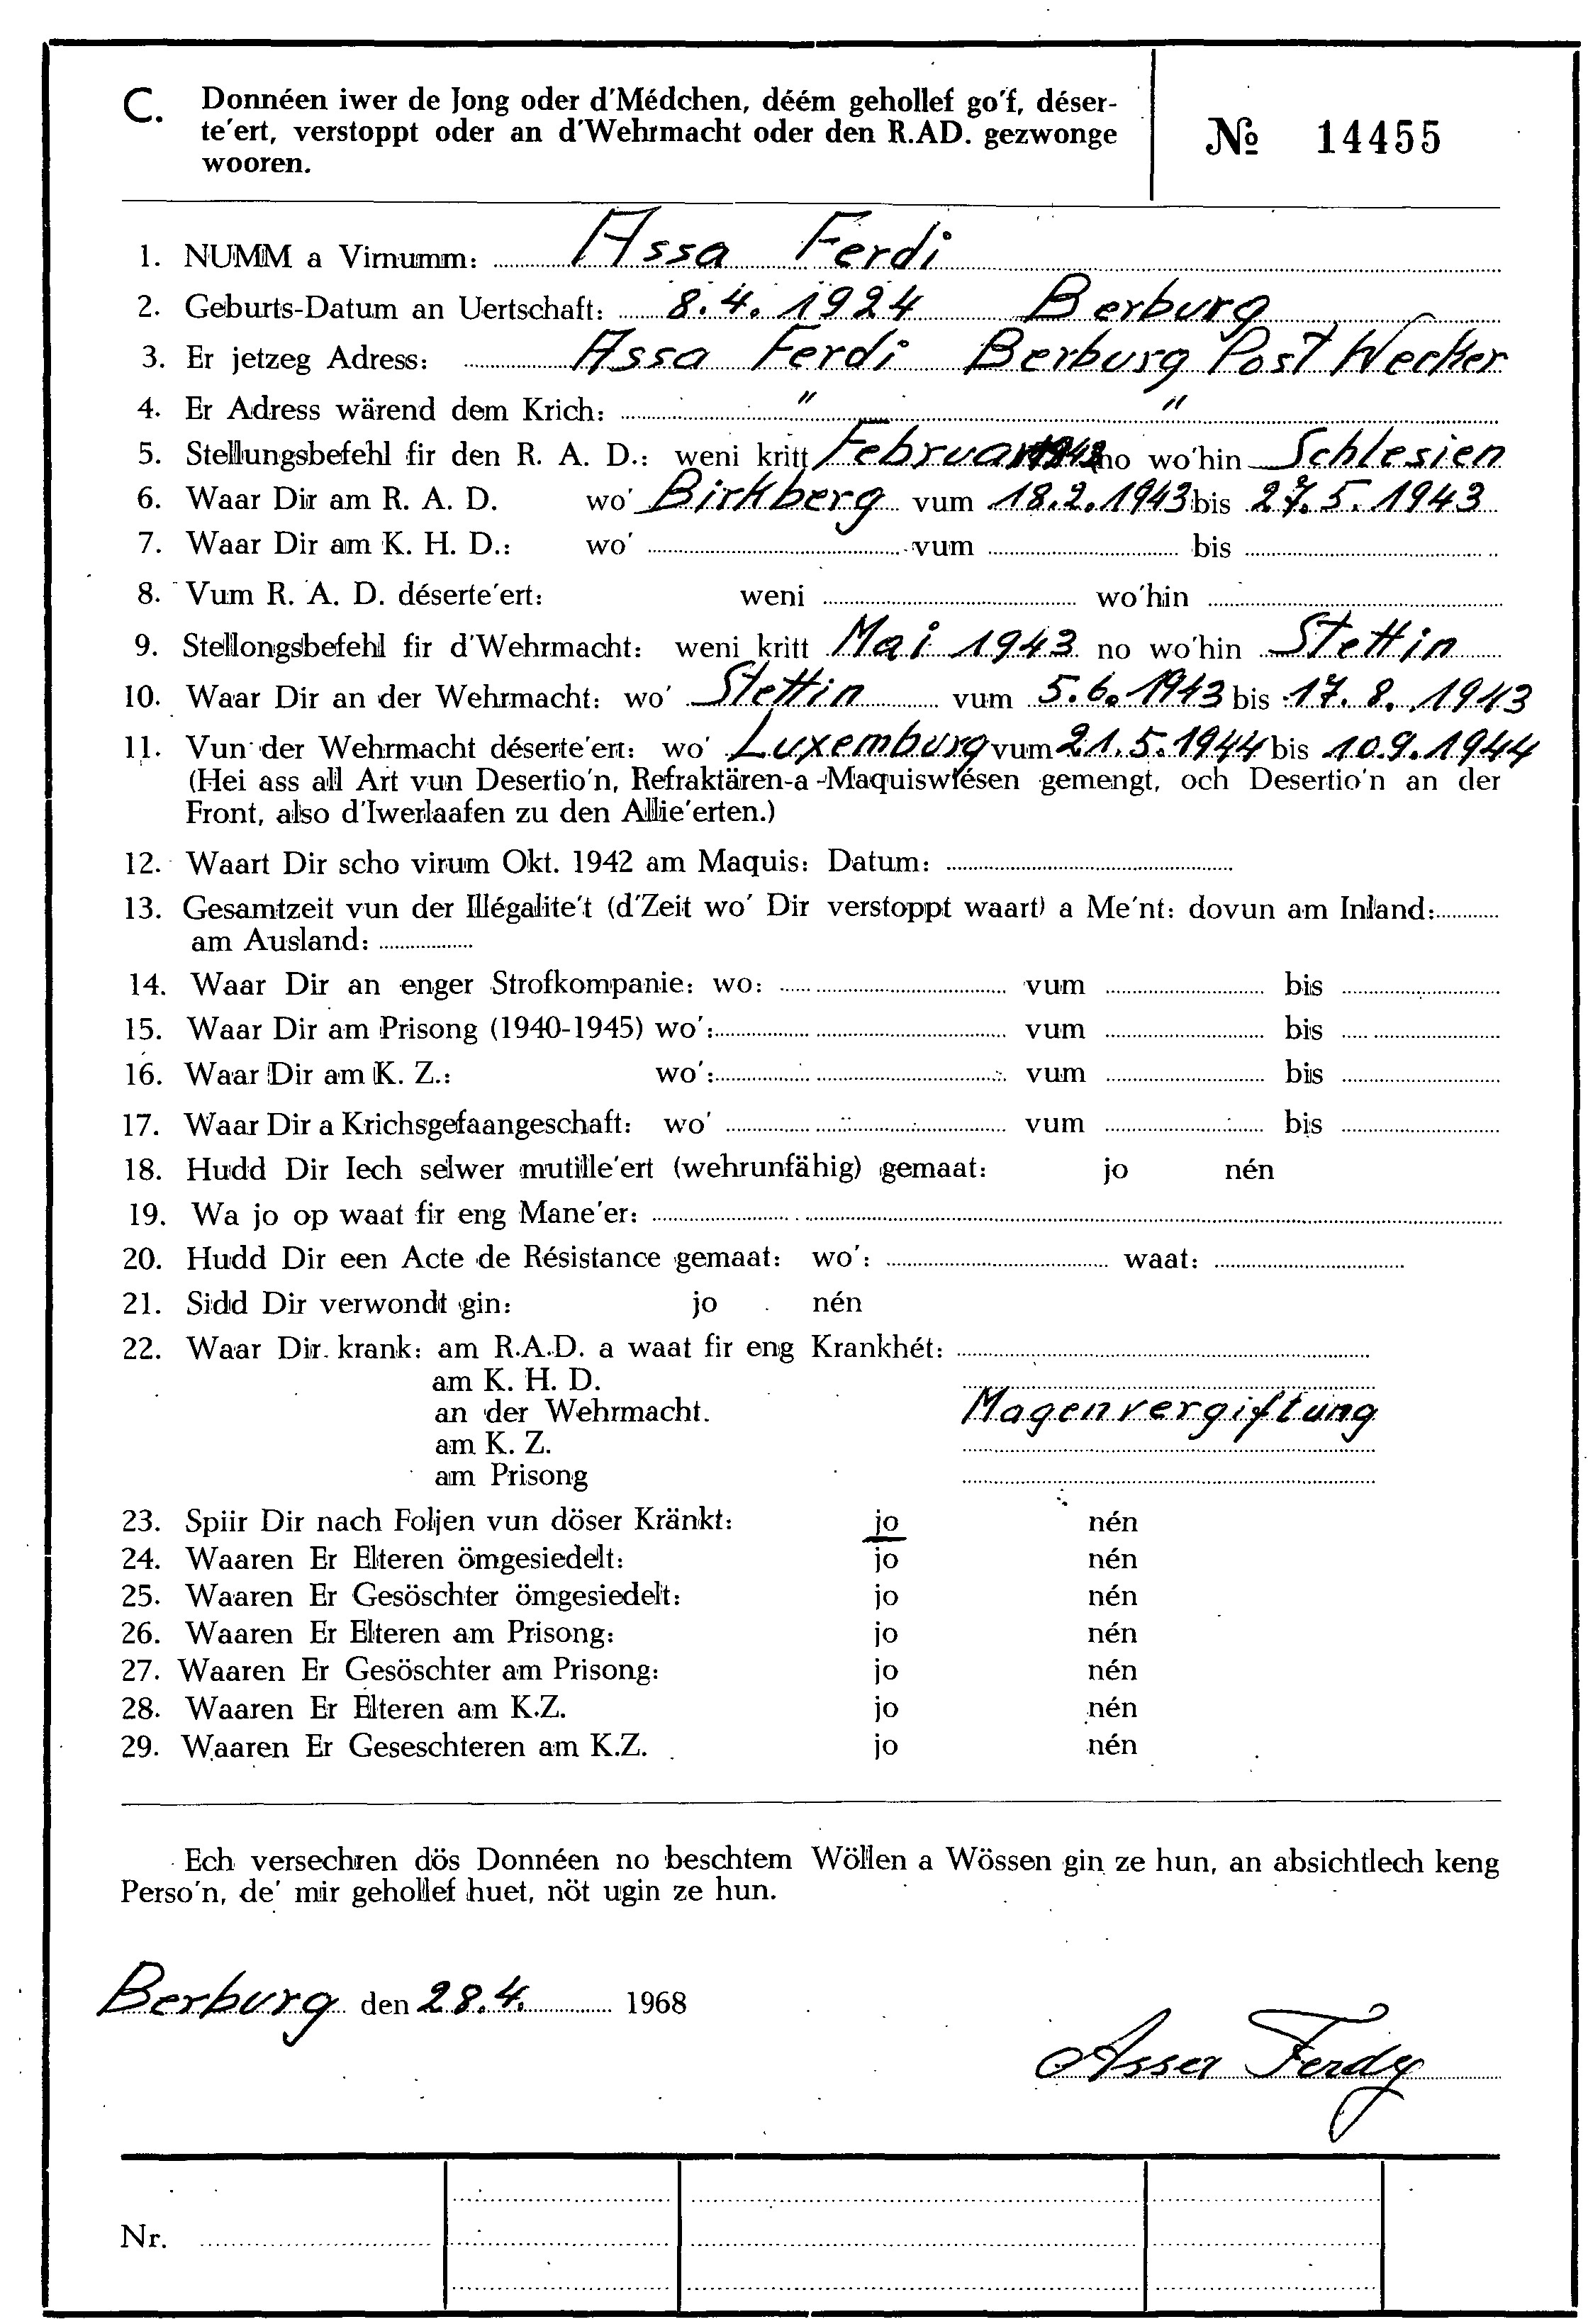 C. Donnéen iwer de Jong oder d'Médchen, déém gehollef go'f, déser-
te'ert, verstoppt oder an d'Wehrmacht oder den R.AD. gezwonge
wooren.
№ 14455
1. NUMM a Virnumm: Assa Ferdi
2. Geburts-Datum an Uertschaft: 8.4.1924 Berburg
3. Er jetzeg Adress: Assa Ferdi Berburg Post Wecker
4. Er Adress wärend dem Krich: " "
5. Stellungsbefehl fir den R. A. D.: weni kritt Februar no wo'hin Schlesien
6. Waar Dir am R. A. D. wo' Birkberg vum 18.2.1943 bis 27.5.1943
7. Waar Dir am K. H. D.: wo' vum bis
8. Vum R. A. D. déserte'ert: weni wo'hin
9. Stellongsbefehl fir d'Wehrmacht: weni kritt Mai 1943 no wo'hin Stettin
10. Waar Dir an der Wehrmacht: wo' Stettin vum 5.6.1943 bis 17.8.1943
11. Vun der Wehrmacht déserte'ert: wo' Luxemburg vum 21.5.1944 bis 10.9.1944
(Hei ass all Art vun Desertio'n, Refraktären-a-Maquiswiésen gemengt, och Desertio'n an der
Front, also d'Iwerlaafen zu den Allie'erten.)
12. Waart Dir scho virum Okt. 1942 am Maquis: Datum:
13. Gesamtzeit vun der Illégalite't (d'Zeit wo' Dir verstoppt waart) a Me'nt: dovun am Inland:
am Ausland:
14. Waar Dir an enger Strofkompanie: wo: vum bis
15. Waar Dir am Prisong (1940-1945) wo': vum bis
16. Waar Dir am K. Z.: wo': vum bis
17. Waar Dir a Krichsgefaangeschaft: wo' vum bis
18. Hudd Dir Iech selwer mutille'ert (wehrunfähig) gemaat: jo nén
19. Wa jo op waat fir eng Mane'er:
20. Hudd Dir een Acte de Résistance gemaat: wo': waat:
21. Sidd Dir verwondt gin: jo nén
22. Waar Dir krank: am R.A.D. a waat fir eng Krankhét:
am K. H. D.
an der Wehrmacht. Magenvergiftung
am K. Z.
am Prisong
23. Spiir Dir nach Foljen vun döser Kränkt: jo nén
24. Waaren Er Elteren ömgesiedelt: jo nén
25. Waaren Er Gesöschter ömgesiedelt: jo nén
26. Waaren Er Elteren am Prisong: jo nén
27. Waaren Er Gesöschter am Prisong: jo nén
28. Waaren Er Elteren am K.Z. jo nén
29. Waaren Er Geseschteren am K.Z. jo nén
Ech versechren dös Donnéen no beschtem Wöllen a Wössen gin ze hun, an absichtlech keng
Perso'n, de' mir gehollef huet, nöt ugin ze hun.
Berburg den 28.4. 1968
Assa Ferdy
Nr.